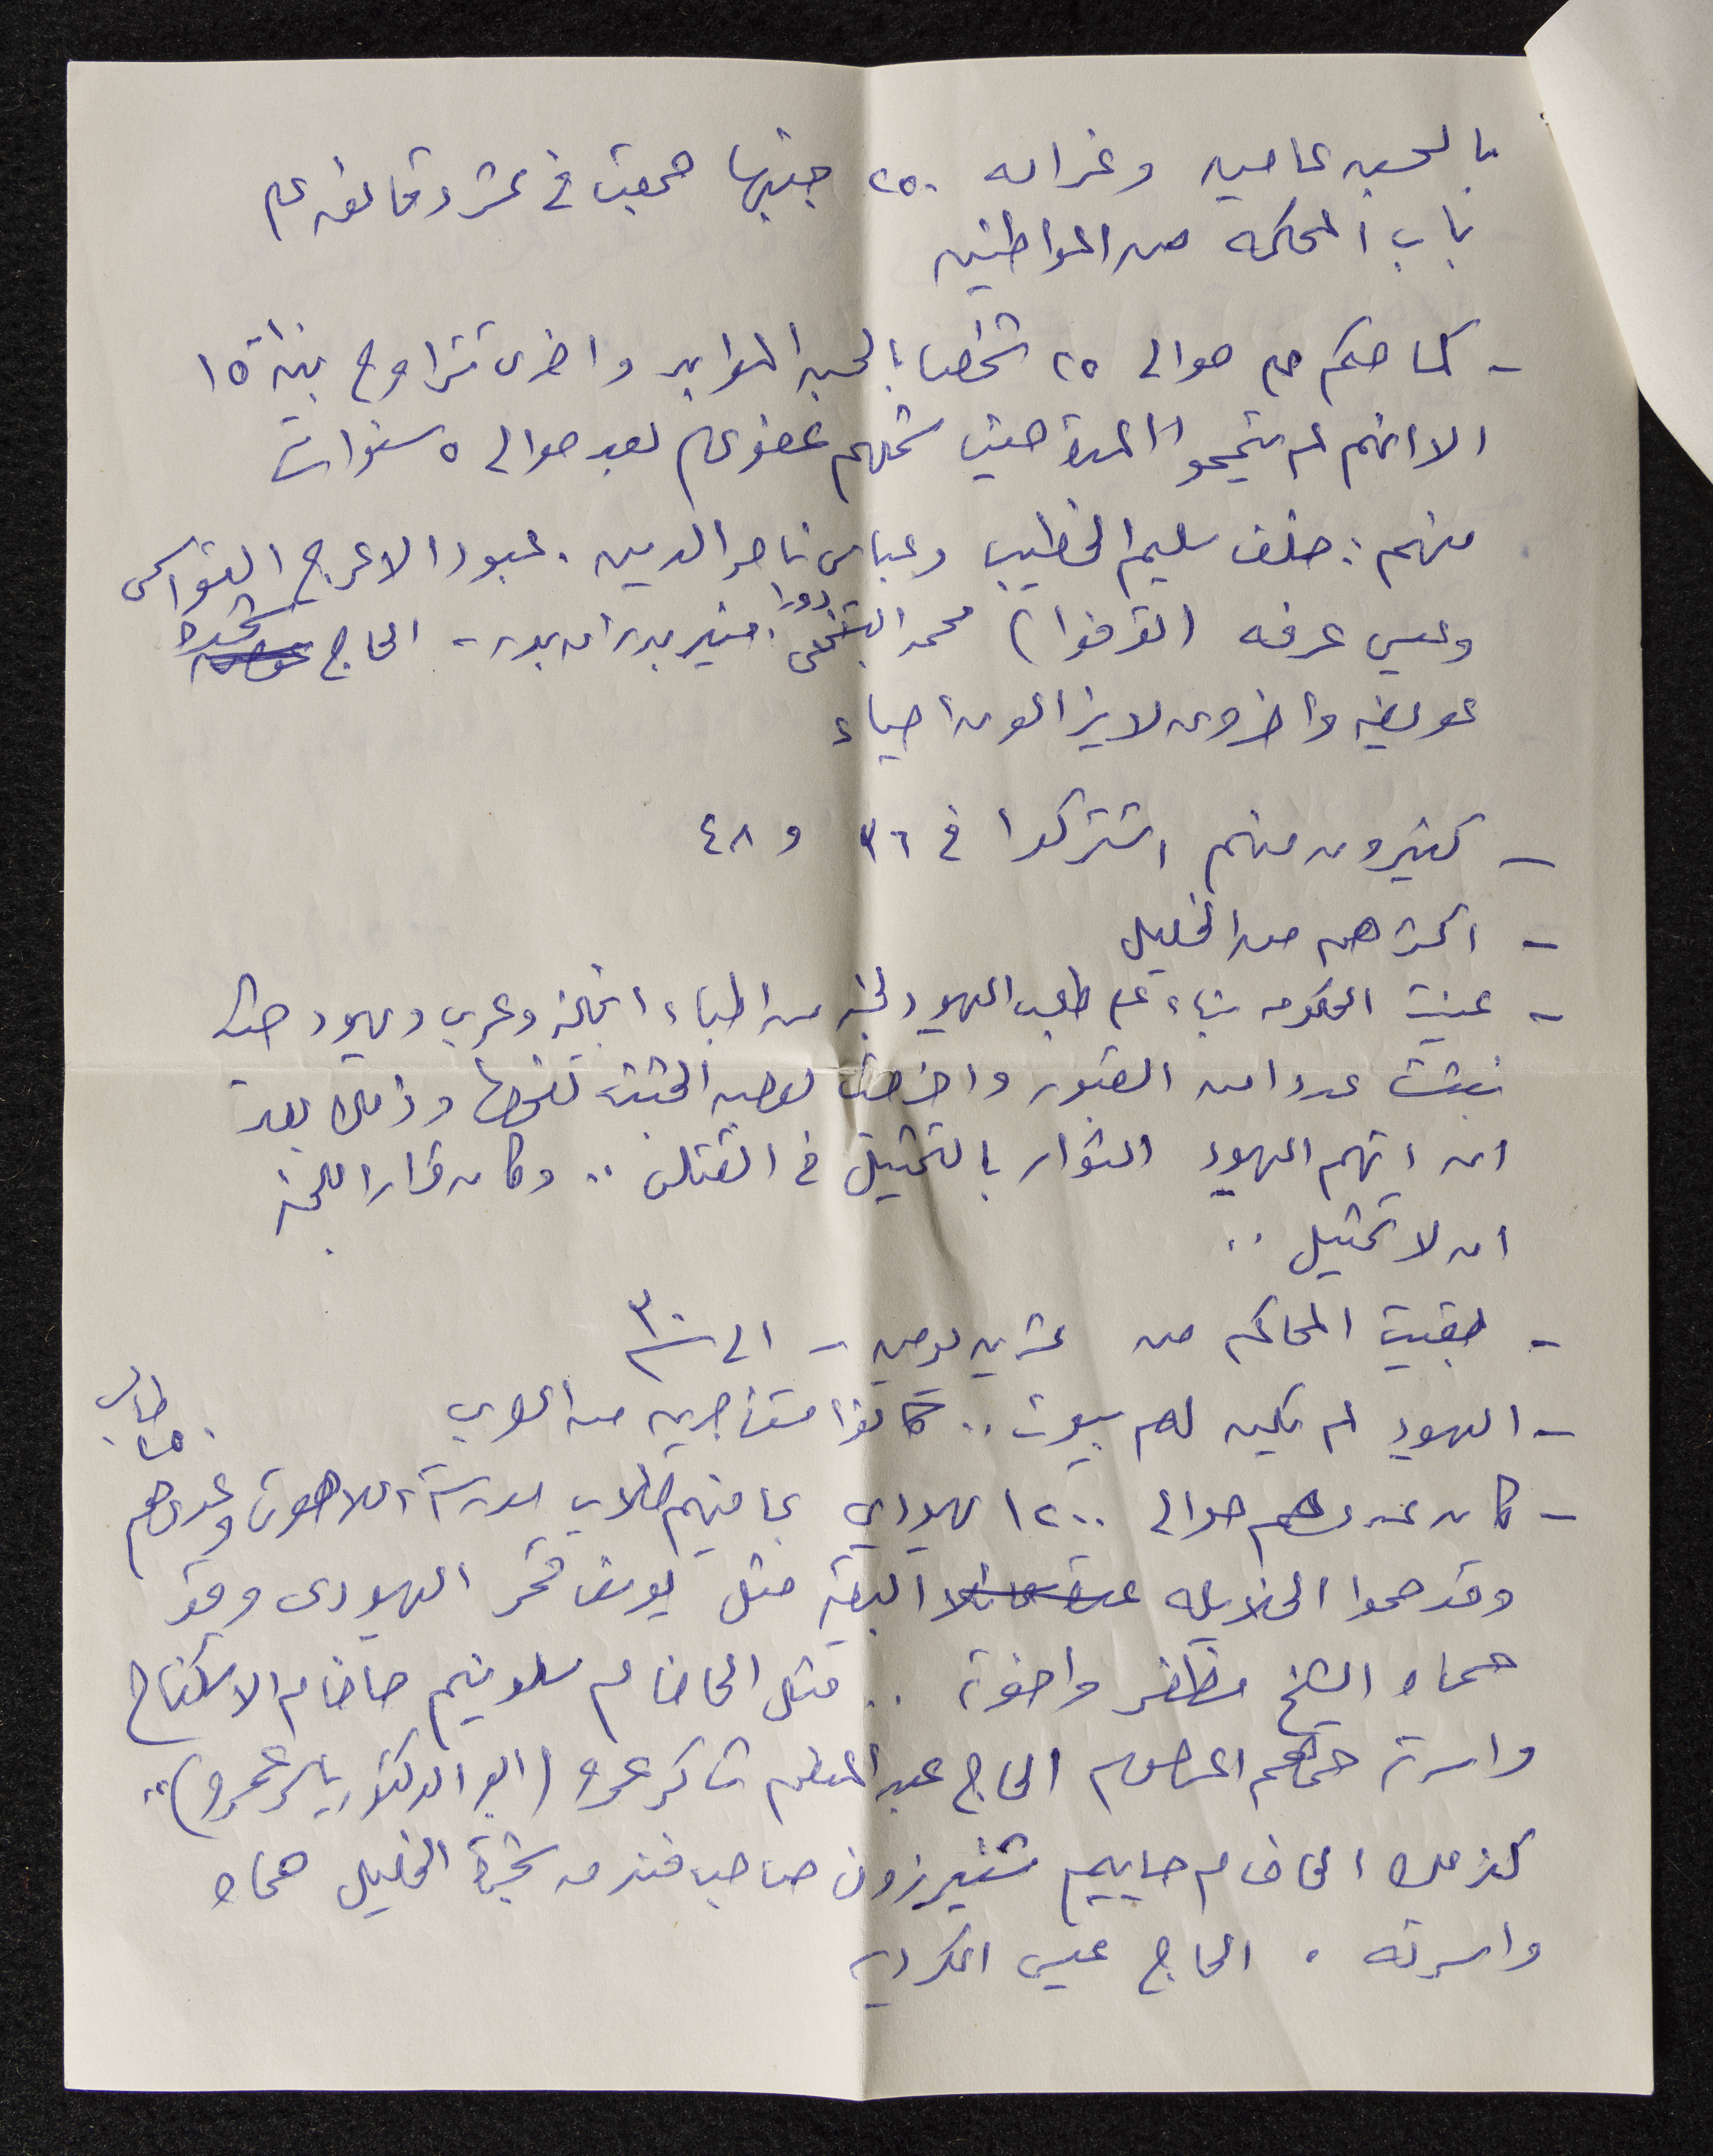 بالحبس عامين وغرامه ٢٥٠ جنيها جمعت في عشر دقائق على
باب المحكمه من المواطنين
- كما حكم على حوالي ٢٥ شخصا بالحبس المؤبد واخرى تتراوح بين ١٥
الا انهم لم يتموا المدة حيث شملهم عفو عام بعد حوالي ٥ سنوات
منهم : خلف سليم الخطيب وعباس ناصر الدين . عبود الاعرج القواسمي
وعيسى عرفه (القرفوا) محمد دورا . منير بدر ابو بدر - الحاج شحده
عويضه واخرون لا يزالون احياء
- كثيرون منهم اشتركوا في ٣٦ و ٤٨
- اكثرهم من الخليل
- عينت الحكومه بناء على طلب اليهود لجنه من اطباء انجليز وعرب ويهود حيث
نبشت عددا من القبور واخرجت بعض الجثث لفحصها وذلك بعد
ان اتهم اليهود الثوار بالتمثيل في القتلى .. وكان قرار اللجنه
ان لا تمثيل ..
- بقيت المحاكم من عشرين يومين - الى ٣٠
- اليهود لم يكن لهم بيوت .. كانوا مستأجرين من العرب
- كان عددهم حوالي ١٢٠٠ يهودي بما فيهم طلاب مدرسة اللاهوت وعددهم ١٥٠ طالب
وقد حموا الخلايله البقيه مثل يوسف قمر اليهودي وقد
حماه الشيخ مظفر واخوته .. قتل الحاخام سلونيم حاخام الاشكناج
واسرته حماهم الحاج عبد المنعم شاكر عمرو (ابو الدكتور ياسر عمرو) ..
كذلك الحاخام حاييم شنيرزون صاحب فندق شجرة الخليل حماه
واسرته . الحاج عيسى الكردي